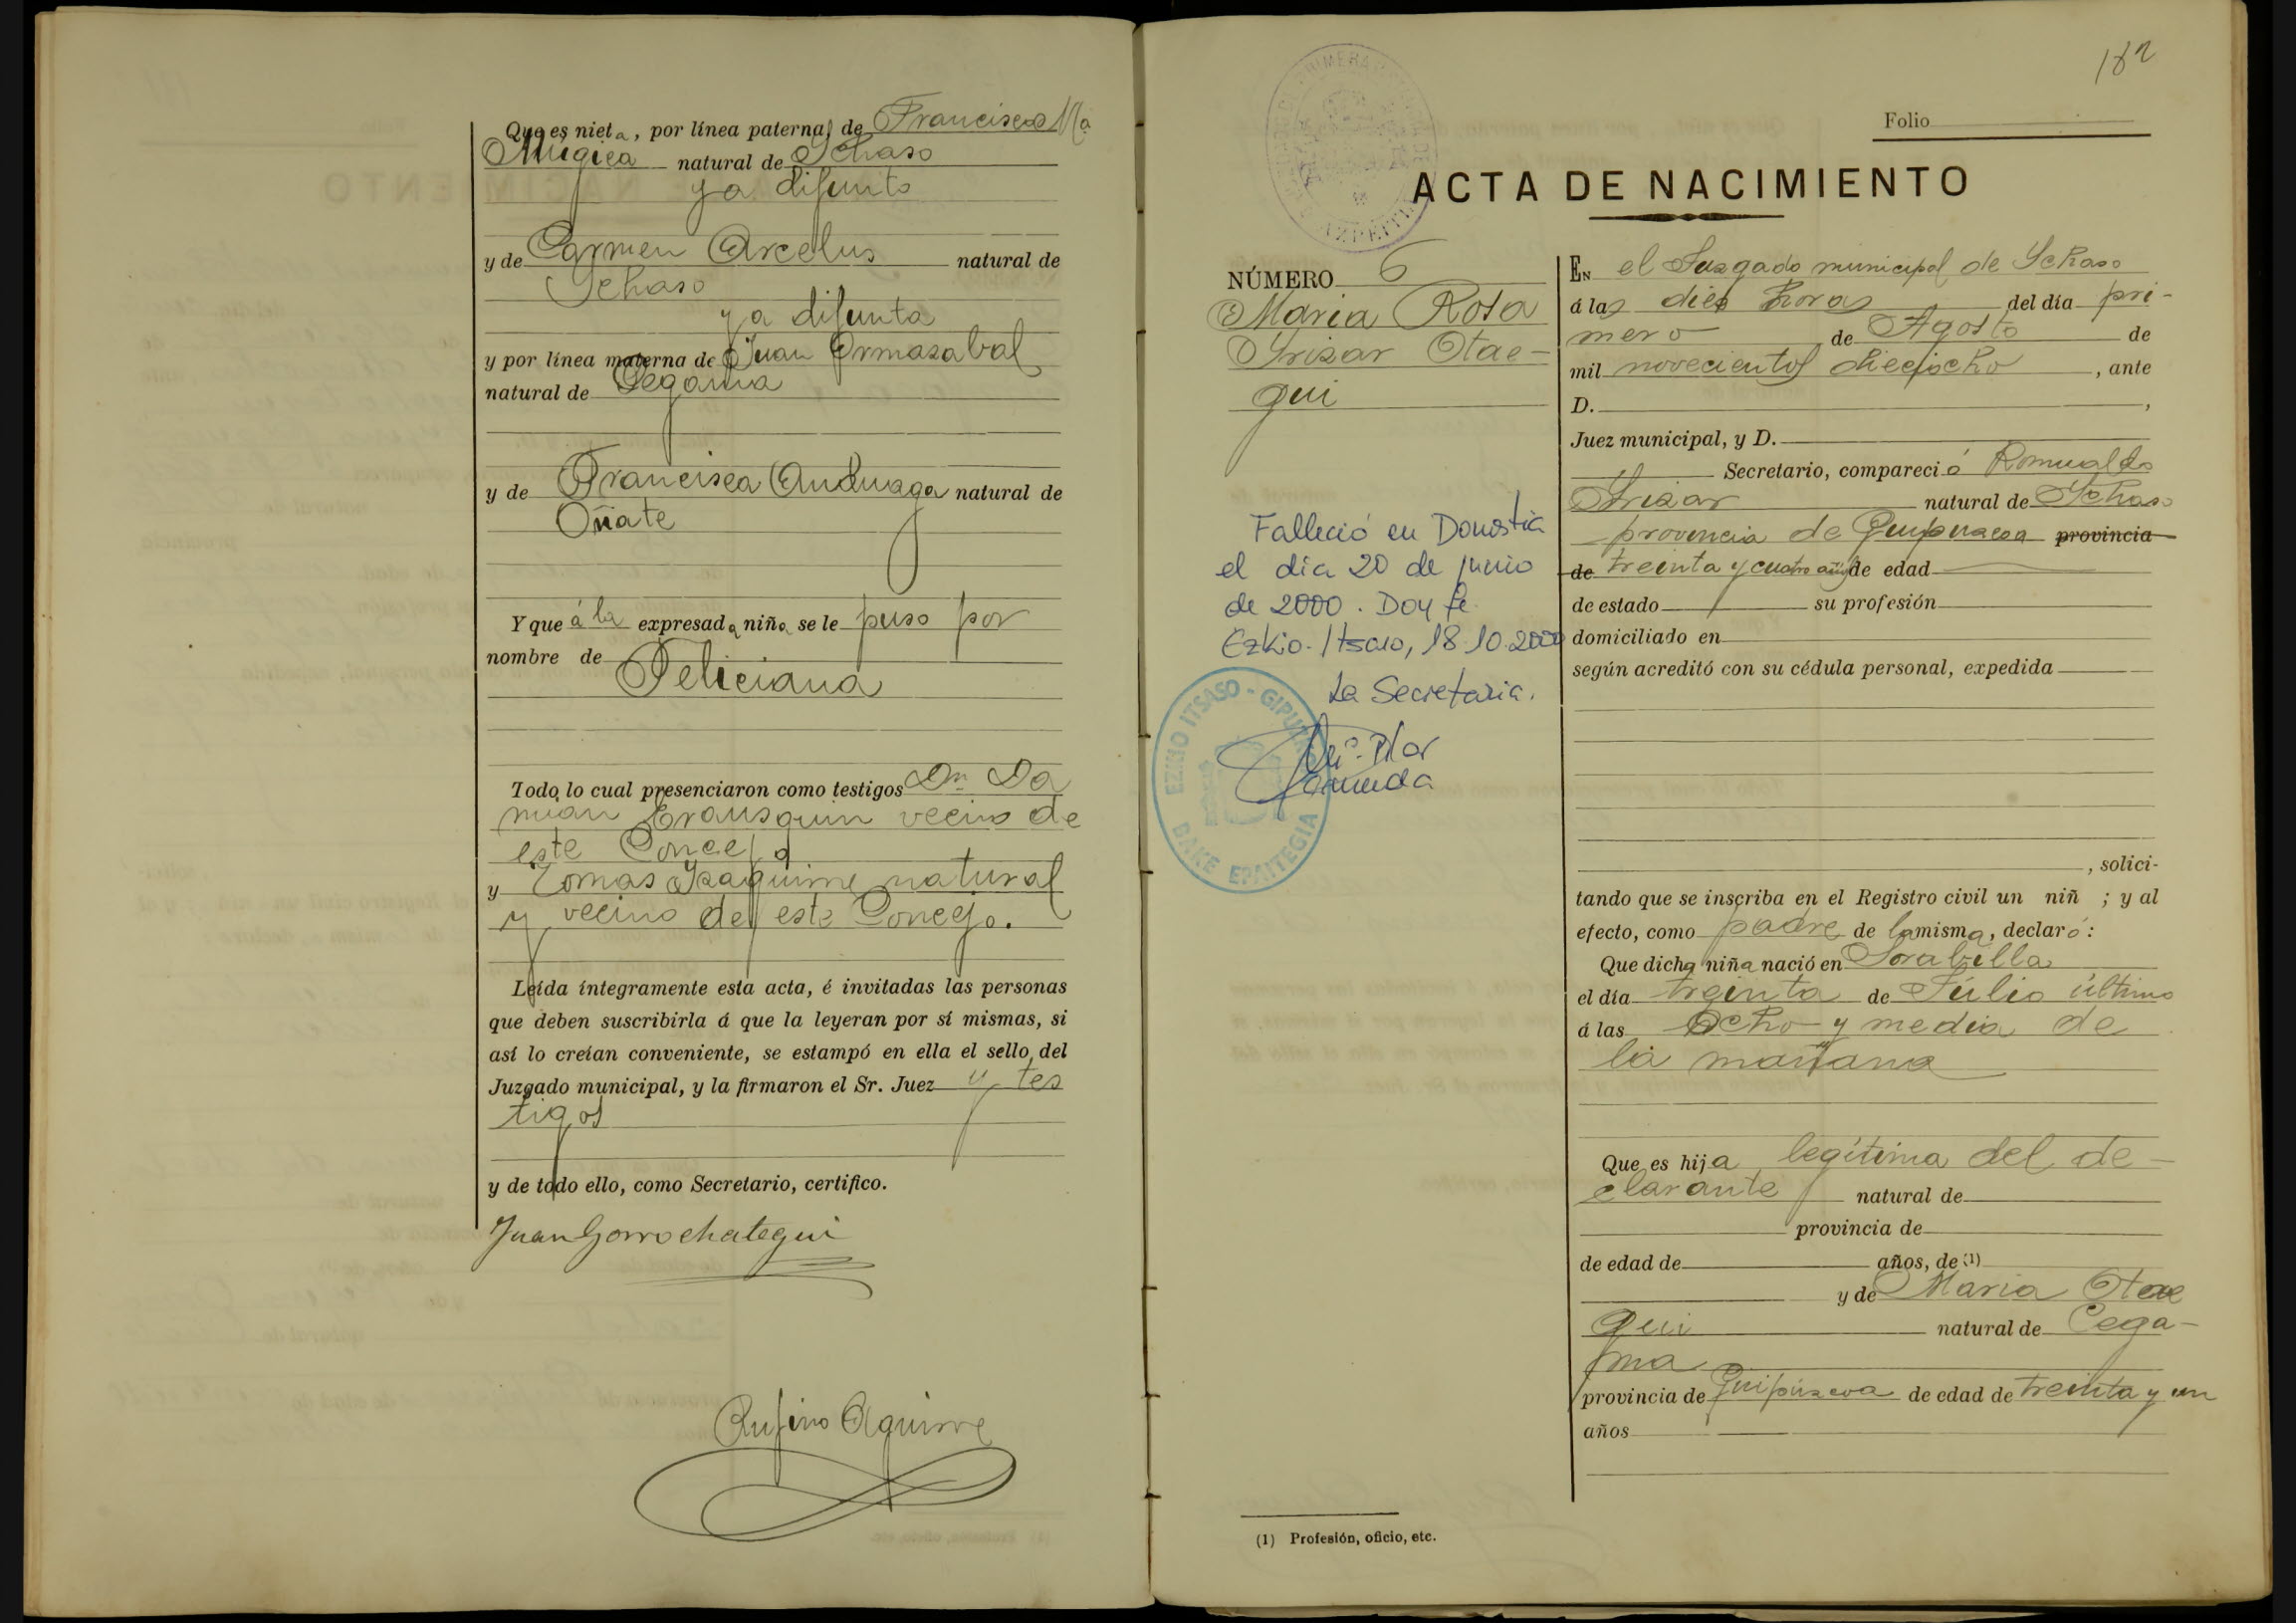 Que es nieta, por línea paterna, de Francisco Mª
Mugica natural de Ychaso
ya difunto
y de Carmen Arcelus natural de
Ychaso
ya difunta
y por línea materna de Juan Ormazabal
natural de Cegama
y de Francisca Anduaga natural de
Oñate
Y que á la expresada niña se le puso por
nombre de
Feliciana
Todo lo cual presenciaron como testigos Dn Da
mian Erausquin vecino de
este Concejo
y Tomas Yzaguirre natural
y vecino de este Concejo.
Leída íntegramente esta acta, é invitadas las personas
que deben suscribirla á que la leyeran por sí mismas, si
así lo creían conveniente, se estampó en ella el sello del
Juzgado municipal, y la firmaron el Sr. Juez y tes
tigos
y de todo ello, como Secretario, certifico.
Juan Gorrochategui
Rufino Aguirre
182
Folio
ACTA DE NACIMIENTO
NÚMERO 6
Maria Rosa
Yrizar Otae-
gui
Falleció en Donostia
el día 20 de junio
de 2000. Doy fe.
Ezkio-Itsaso, 18.10.2000
La Secretaria.
Mª Pilar
EZKIO ITSASO - GIPUZKOA
BAKE EPAITEGIA
EN el Juzgado municipal de Ychaso
á las diez horas del día pri-
mero de Agosto de
mil novecientos dieciocho, ante
D.,
Juez municipal, y D.
Secretario, compareció Romualdo
Yrizar natural de Ychaso
provincia de Guipuzcoa provincia
de treinta y cuatro años de edad
de estado su profesión
domiciliado en
según acreditó con su cédula personal, expedida
, solici-
tando que se inscriba en el Registro civil un niñ ; y al
efecto, como padre de la misma, declaró:
Que dicha niña nació en Sorabilla
el día treinta de Julio último
á las ocho y media de
la mañana
Que es hija legítima del de-
clarante natural de
provincia de
de edad de años, de (1)
y de Maria Otae
gui natural de Cega-
ma
provincia de Guipúzcoa de edad de treinta y un
años
(1) Profesión, oficio, etc.